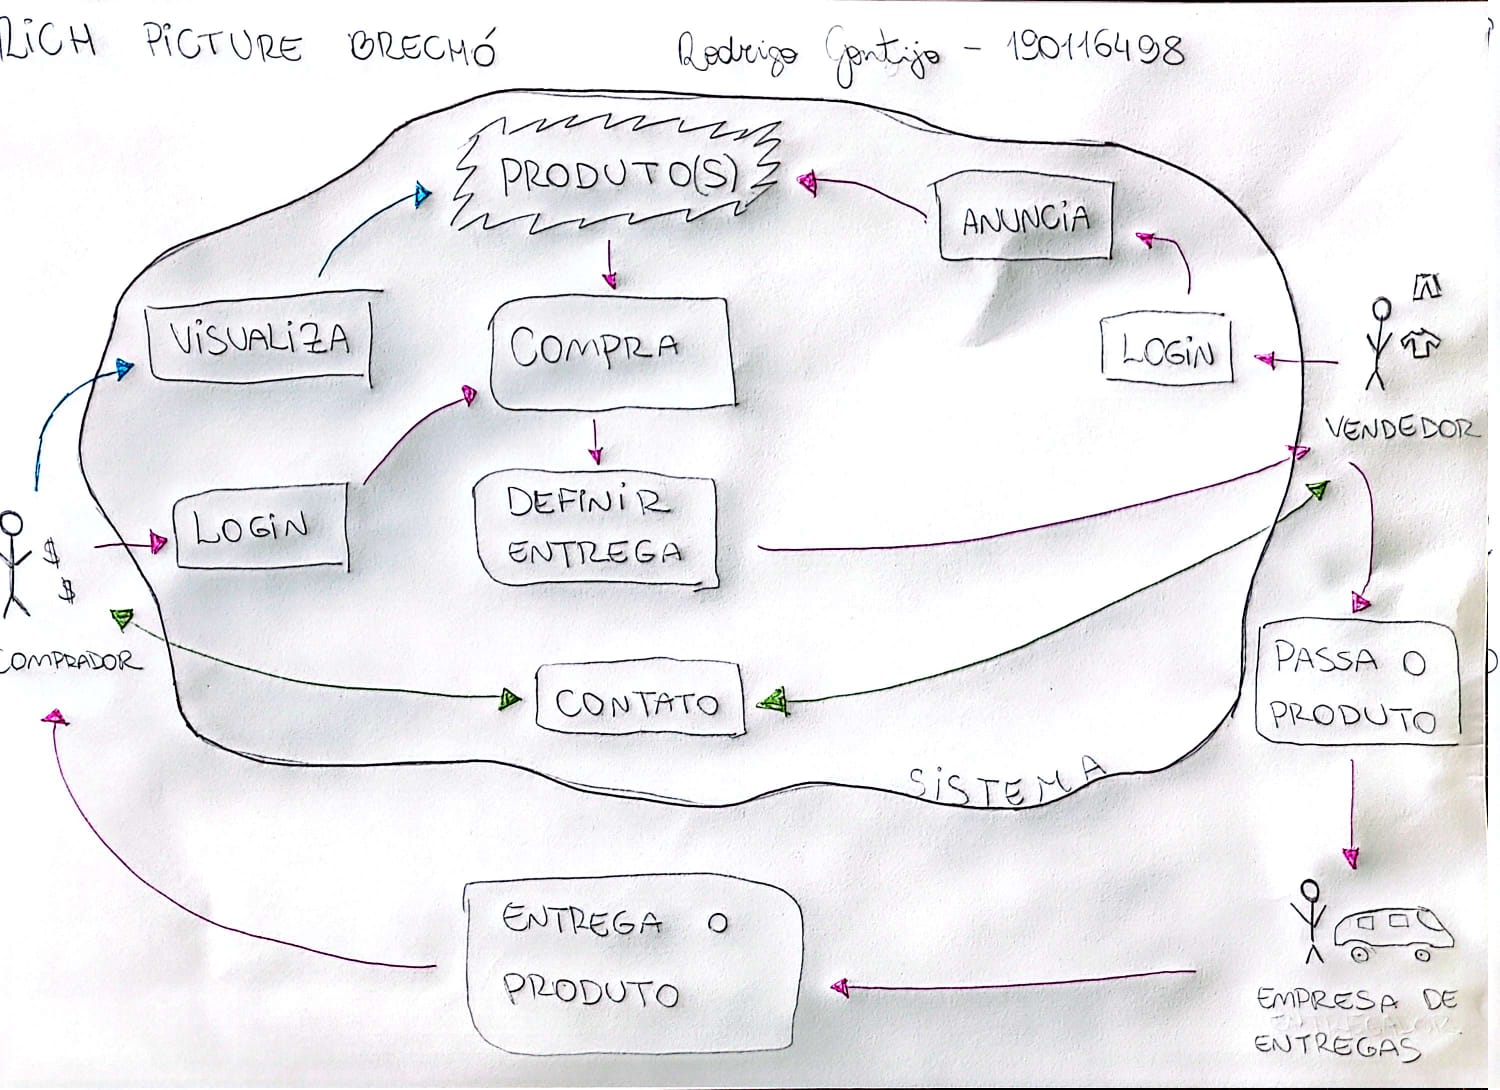 RICH PICTURE BRECHÓ
Rodrigo Gontijo - 190116498
PRODUTO(S)
ANUNCIA
VISUALIZA
COMPRA
LOGIN
VENDEDOR
LOGIN
DEFINIR
ENTREGA
$
$
COMPRADOR
CONTATO
PASSA O
PRODUTO
SISTEMA
ENTREGA O
PRODUTO
EMPRESA DE
ENTREGAS